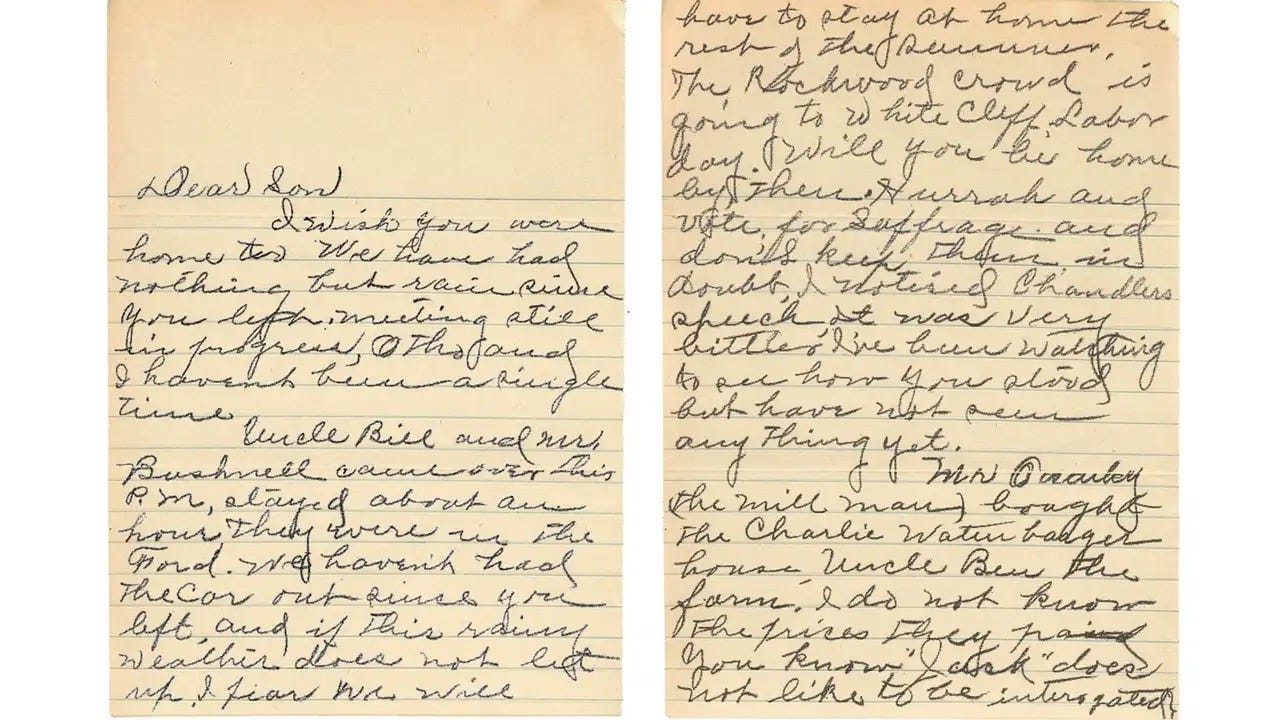 Dear Son
I wish you were
home too We have had
nothing but rain since
you left. meeting still
in progress, Otho and
I havent been a single
time
Uncle Bill and Mr.
Bushnell came over this
P.M, stayed about an
hour They were in the
Ford. We havent had
the Car out since you
left, and if this rainy
weather does not let
up, I fear we will
have to stay at home the
rest of the summer.
The Rockwood crowd is
going to White Cliff Labor
day. Will you be home
by then. Hurrah and
vote for Suffrage and
don't keep them in
doubt, I notised Chandlers
speech, it was very
bitter, I've been watching
to see how you stood
but have not seen
any thing yet.
Mr
(the mill man) bought
the Charlie
house Uncle Ben the
farm. I do not know
the prises they paid
You know "Jack" does
not like to be interogated.